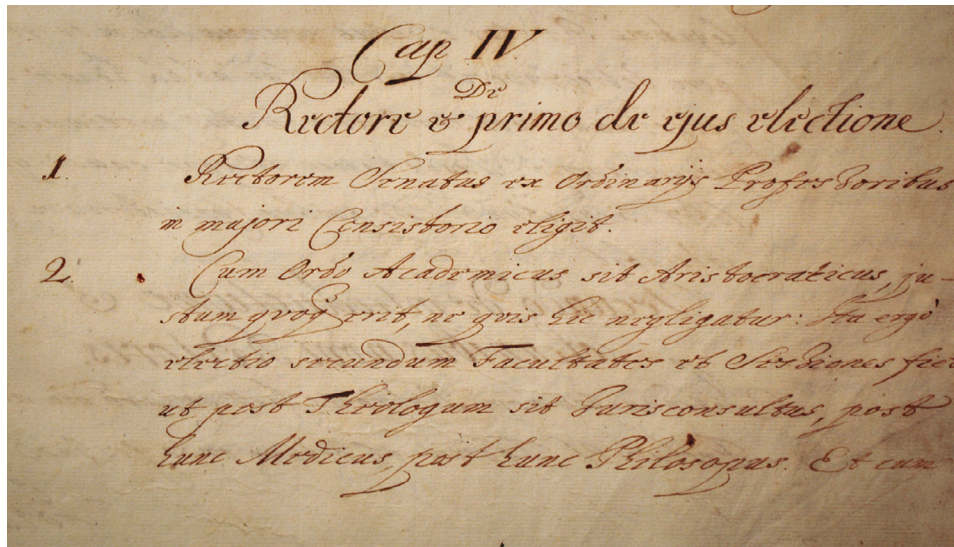 Cap IV.
De
Rectore & primo de ejus electione.
1. Rectorem Senatus ex Ordinarijs Professoribus
in majori Consistorio eligit.
2. Cum Ordo Academicus sit Aristocraticus, ju-
stum qvoq̃ erit, ne qvis hic negligatur: Ita ergò
electio secundum Facultates et Sessiones fiet
ut post Theologum sit Jurisconsultus, post
hunc Medicus, post hunc Philosopus. Et cum